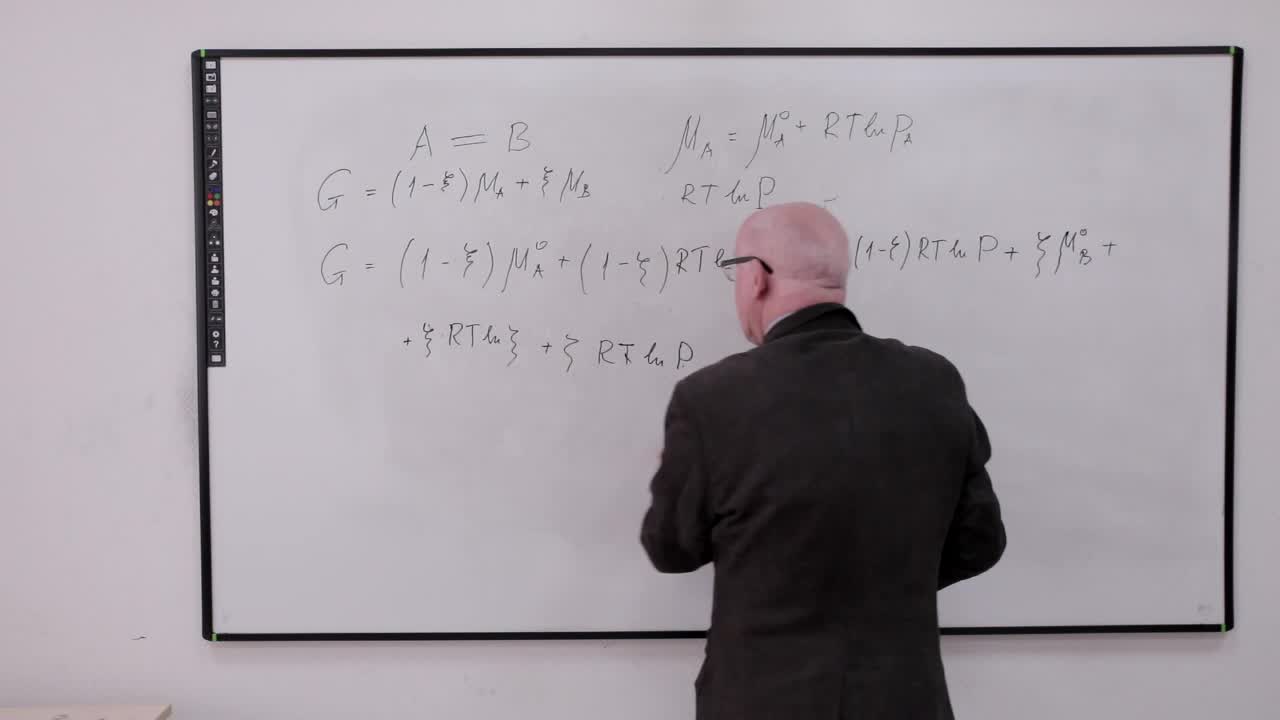 A = B
μ_A = μ_A^0 + RT ln P_A
G = (1-ξ) μ_A + ξ μ_B
RT ln P
G = (1-ξ) μ_A^0 + (1-ξ) RT (1-ξ) RT ln P + ξ μ_B^0 +
+ ξ RT ln ξ + ξ RT ln P